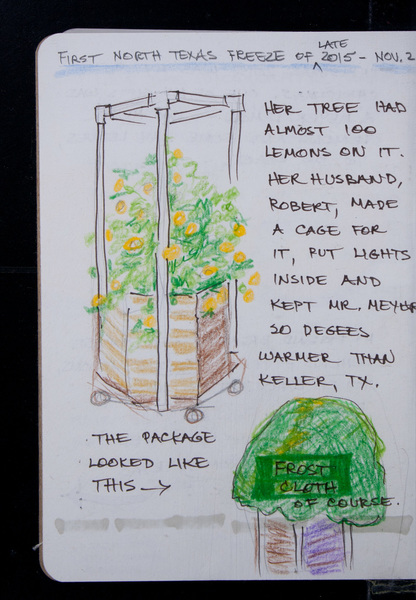 LATE
FIRST NORTH TEXAS FREEZE OF 2015 - NOV. 2
HER TREE HAD
ALMOST 100
LEMONS ON IT.
HER HUSBAND,
ROBERT, MADE
A CAGE FOR
IT, PUT LIGHTS
INSIDE AND
KEPT MR. MEYER
20 DEGEES
WARMER THAN
KELLER, TX.
THE PACKAGE
LOOKED LIKE
THIS →
FROST
CLOTH
OF COURSE.